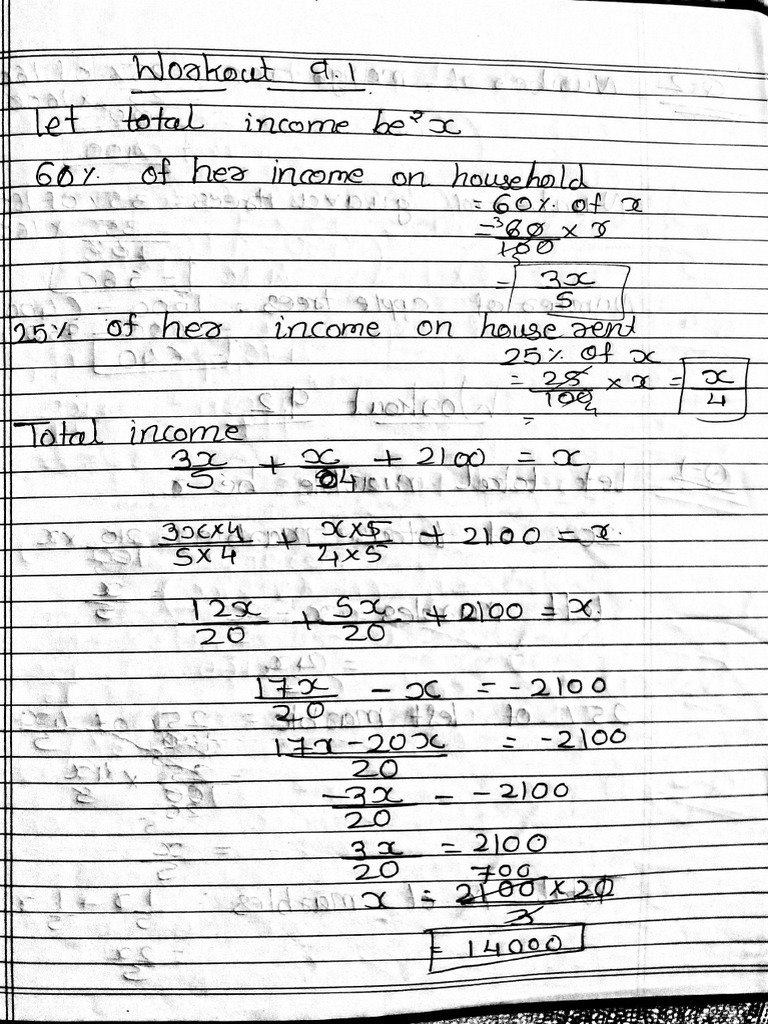 Workout 9.1
Let total income be x
60% of her income on household
= 60% of x
= 60/100 × x
= 3x/5
25% of her income on house rent
25% of x
= 25/100 × x = x/4
Total income
3x/5 + x/4 + 2100 = x
3x×4/5×4 + x×5/4×5 + 2100 = x
12x/20 + 5x/20 + 2100 = x
17x/20 - x = -2100
17x-20x/20 = -2100
-3x/20 = -2100
3x/20 = 2100
700
x = 2100×20/3
= 14000